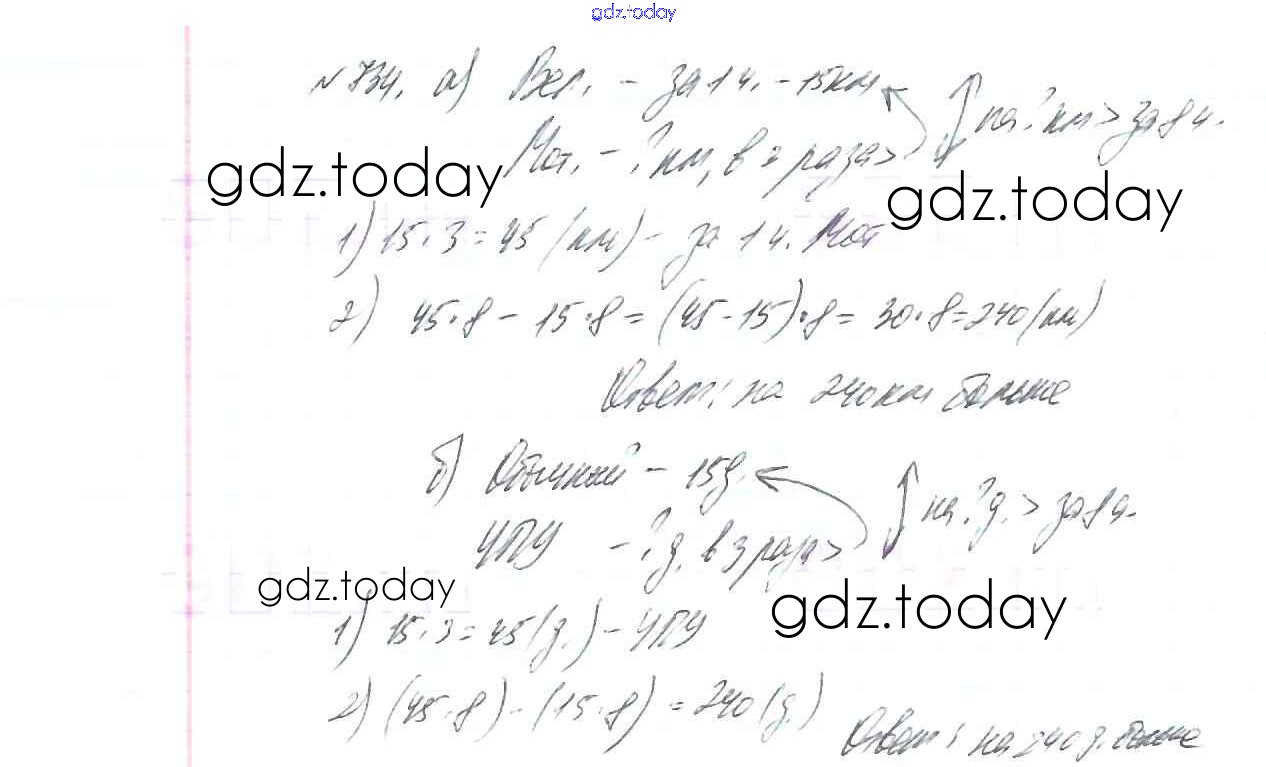 gdz.today
№ 734. а) Вел. – за 1 ч. – 15 км
на ? км > за 8 ч.
Мот. – ? км, в 3 раза >
gdz.today
gdz.today
1) 15·3=45 (км) – за 1 ч. Мот
2) 45·8 – 15·8 = (45-15)·8 = 30·8=240 (км)
Ответ: на 240 км больше
б) Обычный – 15 д.
на ? д. > за 8 ч.
ЧПУ – ? д. в 3 раза >
gdz.today
gdz.today
1) 15·3=45 (д.) – ЧПУ
2) (45·8) – (15·8) = 240 (д.)
Ответ: на 240 д. больше